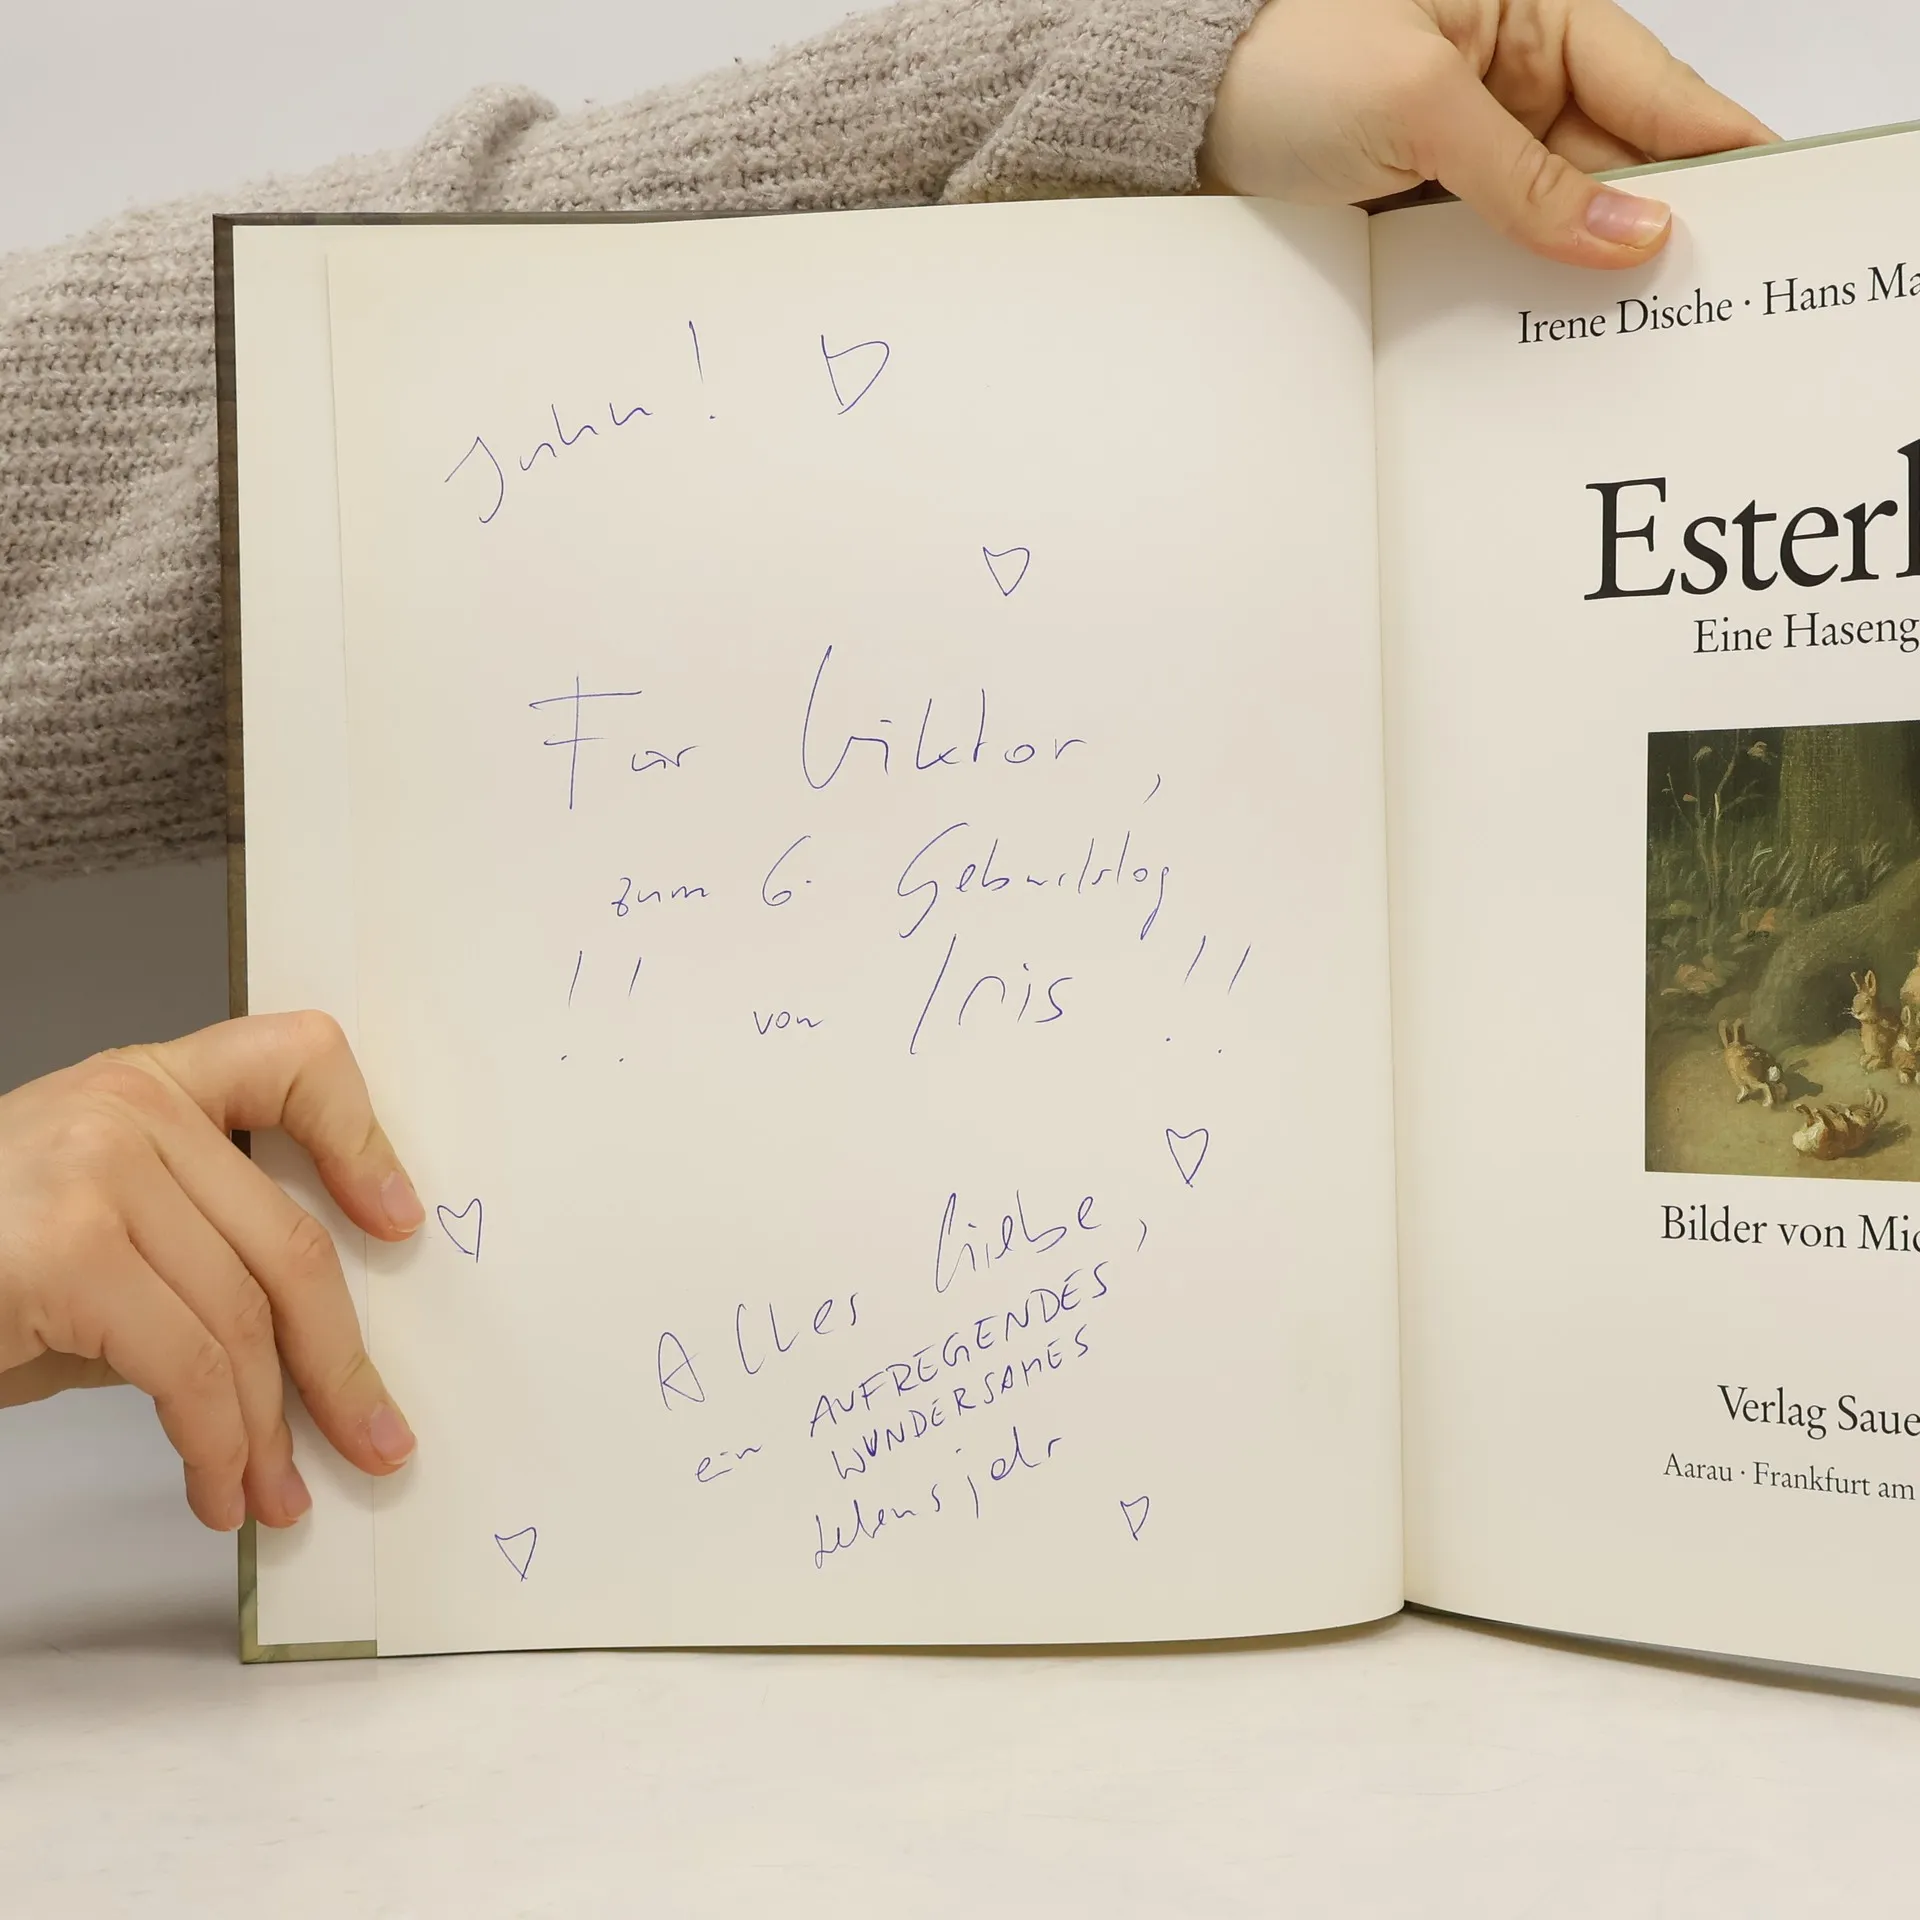 Für Viktor,
zum 6. Geburtstag
!! von Iris !!
Alles Liebe,
ein AUFREGENDES
WUNDERSAMES
Lebensjahr
Irene Dische · Hans Ma
Esterh
Eine Haseng
Bilder von Mic
Verlag Saue
Aarau · Frankfurt am